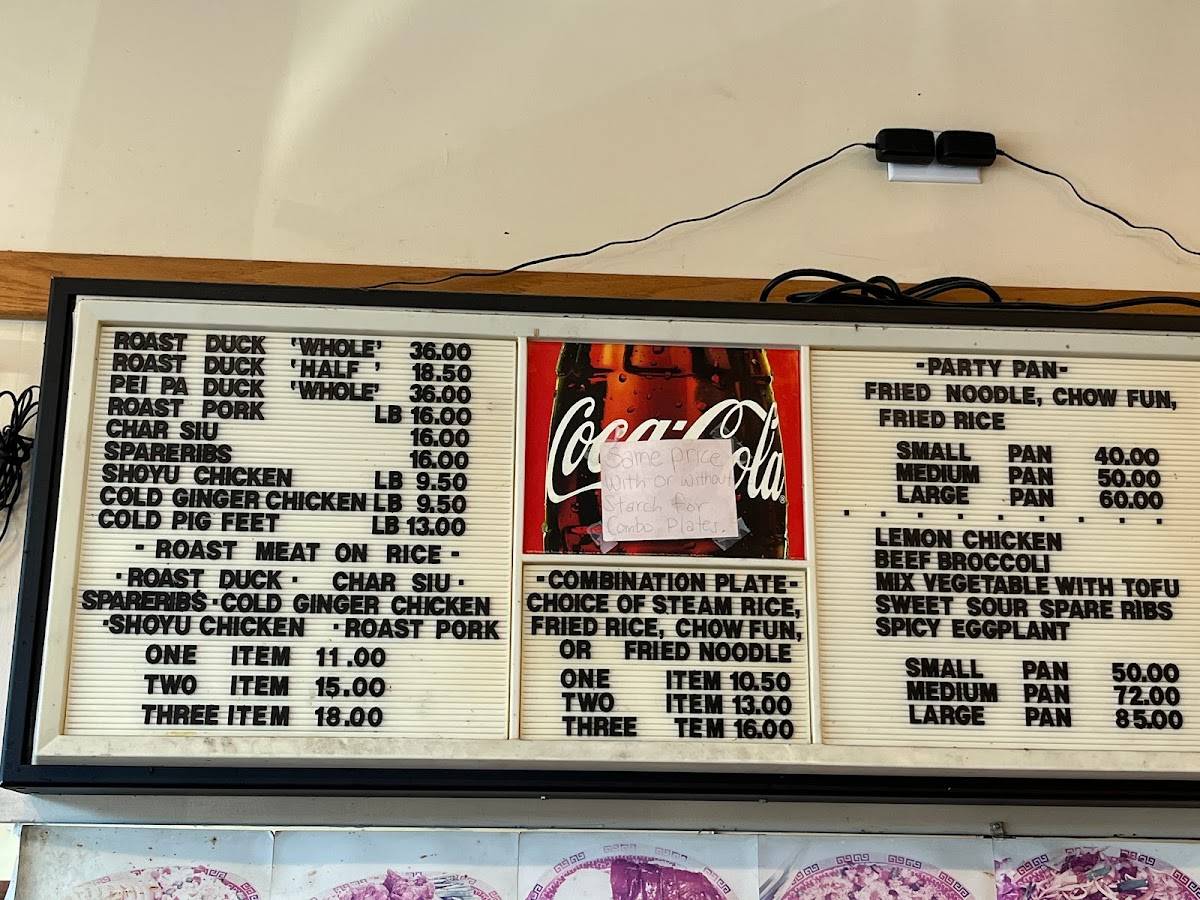 ROAST DUCK 'WHOLE' 36.00
ROAST DUCK 'HALF ' 18.50
PEI PA DUCK 'WHOLE' 36.00
ROAST PORK LB 16.00
CHAR SIU 16.00
SPARERIBS 16.00
SHOYU CHICKEN LB 9.50
COLD GINGER CHICKEN LB 9.50
COLD PIG FEET LB 13.00
- ROAST MEAT ON RICE -
·ROAST DUCK· CHAR SIU·
SPARERIBS·COLD GINGER CHICKEN
·SHOYU CHICKEN ·ROAST PORK
ONE ITEM 11.00
TWO ITEM 15.00
THREE ITEM 18.00
Coca-Cola
Same price
with or without
Starch for
Combo Plates.
-COMBINATION PLATE-
CHOICE OF STEAM RICE,
FRIED RICE, CHOW FUN,
OR FRIED NOODLE
ONE ITEM 10.50
TWO ITEM 13.00
THREE TEM 16.00
-PARTY PAN-
FRIED NOODLE, CHOW FUN,
FRIED RICE
SMALL PAN 40.00
MEDIUM PAN 50.00
LARGE PAN 60.00
. . . . . . . . . .
LEMON CHICKEN
BEEF BROCCOLI
MIX VEGETABLE WITH TOFU
SWEET SOUR SPARE RIBS
SPICY EGGPLANT
SMALL PAN 50.00
MEDIUM PAN 72.00
LARGE PAN 85.00